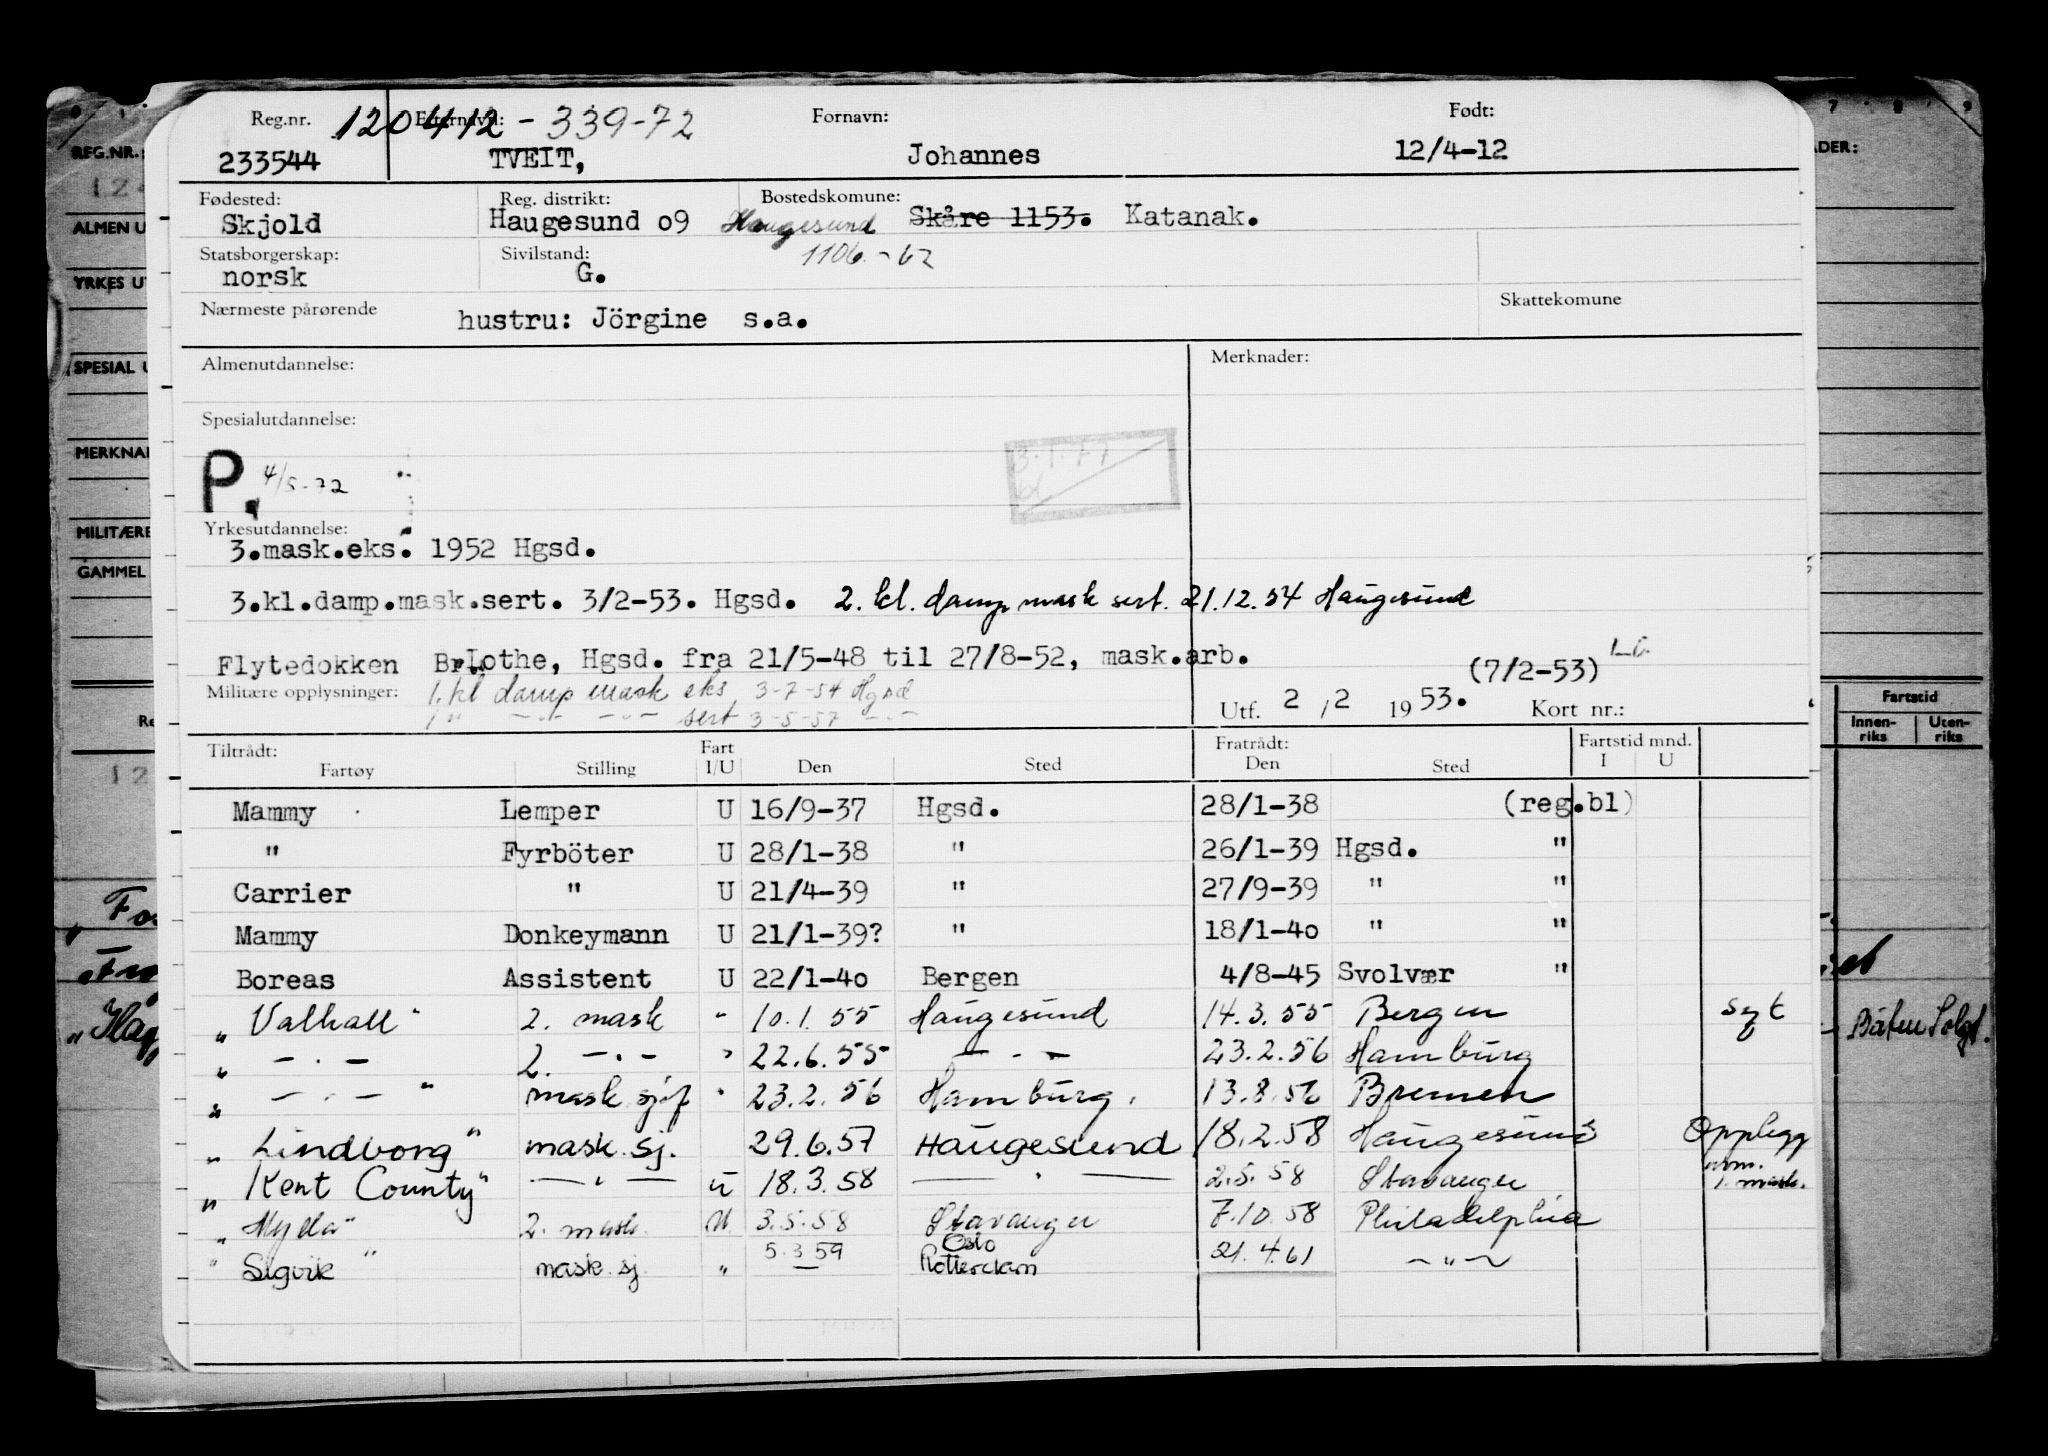 Reg.nr. Etternavn: Fornavn: Født:
120412-339-72
233544 TVEIT, Johannes 12/4-12
Fødested: Reg. distrikt: Bostedskomune:
Skjold Haugesund o9 Haugesund Skåre 1153. Katanak.
1106-62
Statsborgerskap: Sivilstand:
norsk G.
Nærmeste pårørende Skattekomune
hustru: Jörgine s.a.
Almenutdannelse: Merknader:
Spesialutdannelse:
P. 4/5-72
3.1.77
Yrkesutdannelse:
3.mask.eks. 1952 Hgsd.
3.kl.damp.mask.sert. 3/2-53. Hgsd. 2. kl. damp mask sert. 21.12.54 Haugesund
Flytedokken Br.Lothe, Hgsd. fra 21/5-48 til 27/8-52, mask.arb. (7/2-53)
Militære opplysninger: 1. kl damp mask eks 3-7-54 Hgsd
1 " —"— —"— sert 3-5-57 —"—
Utf. 2 / 2 1953. Kort nr.:
Tiltrådt: Fart Fratrådt: Fartstid mnd.
Fartøy Stilling I/U Den Sted Den Sted I U
Mammy Lemper U 16/9-37 Hgsd. 28/1-38 (reg.bl)
" Fyrböter U 28/1-38 " 26/1-39 Hgsd. "
Carrier " U 21/4-39 " 27/9-39 " "
Mammy Donkeymann U 21/1-39? " 18/1-4o " "
Boreas Assistent U 22/1-4o Bergen 4/8-45 Svolvær "
"Valhall" 2. mask " 10.1.55 Haugesund 14.3.55 Bergen syk
" — . — 2. — . — " 22.6.55 — . — 23.2.56 Hamburg
" — . — " mask.sjef " 23.2.56 Hamburg. 13.8.56 Bremen
"Lindborg" mask.sj. 29.6.57 Haugesund 18.2.58 Haugesund Opplegg
"Kent County" — " — u 18.3.58 — " — 2.5.58 Stavanger 1. mask.
"Hyda" 2. mask. U. 3.5.58 Stavanger 7.10.58 Philadelphia
"Sigvik" mask.sj. " 5.3.59 Oslo 21.4.61 — " —
Rotterdam
REG.NR.:
ALMEN U
YRKES UT
SPESIAL U
MERKNA
MILITÆRE
GAMMEL
Fartstid
Innen-riks Uten-riks
Båten Solgt.